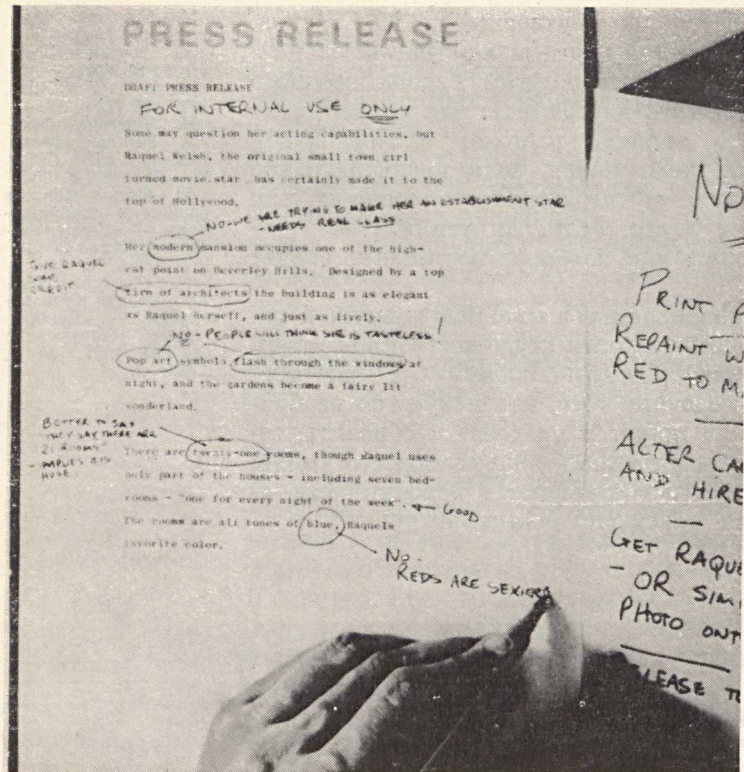 PRESS RELEASE
DRAFT PRESS RELEASE
FOR INTERNAL USE ONLY
Some may question her acting capabilities, but
Raquel Welsh, the original small town girl
turned movie star has certainly made it to the
top of Hollywood.
NO - WE ARE TRYING TO MAKE HER AN ESTABLISHMENT STAR
- NEEDS REAL CLASS
Her modern mansion occupies one of the high-
est point on Beverley Hills. Designed by a top
GIVE RAQUEL
SOME
CREDIT
firm of architects the building is as elegant
as Raquel herself, and just as lively.
NO - PEOPLE WILL THINK SHE IS TASTELESS!
Pop art symbols flash through the windows at
night, and the gardens become a fairy lit
wonderland.
BETTER TO SAY
"THEY SAY THERE ARE
21 ROOMS"
- IMPLIES ITS
HUGE
There are twenty-one rooms, though Raquel uses
only part of the houses - including seven bed-
rooms - "one for every night of the week".
GOOD
The rooms are all tones of blue, Raquels
favorite color.
NO -
REDS ARE SEXIER
NO
PRINT P
REPAINT W
RED TO MA
ALTER CA
AND HIRE
GET RAQUE
- OR SIMI
PHOTO ONT
LEASE T